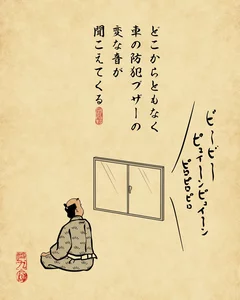 どこからともなく
車の防犯ブザーの
変な音が
聞こえてくる
ビービー
ピュイーンピュイーン
ピロピロピロ